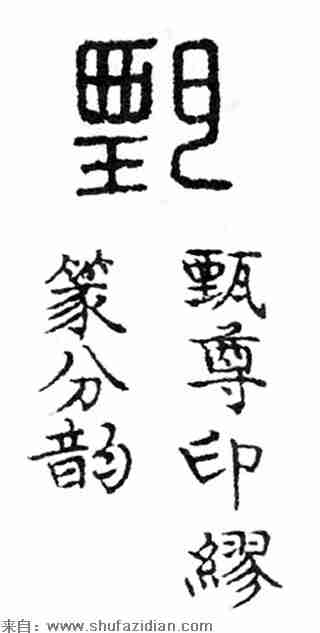 甄
甄尊印繆
篆分韵
来自：www.shufazidian.com